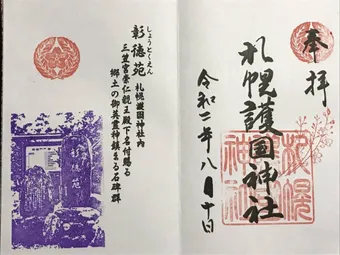 奉拝
札幌護国神社
札幌護国神社
令和二年八月十日
しょうとくえん
彰徳苑 札幌護国神社内
三笠宮崇仁親王殿下名付賜る
郷土の御英霊神鎮まる石碑群
彰徳苑